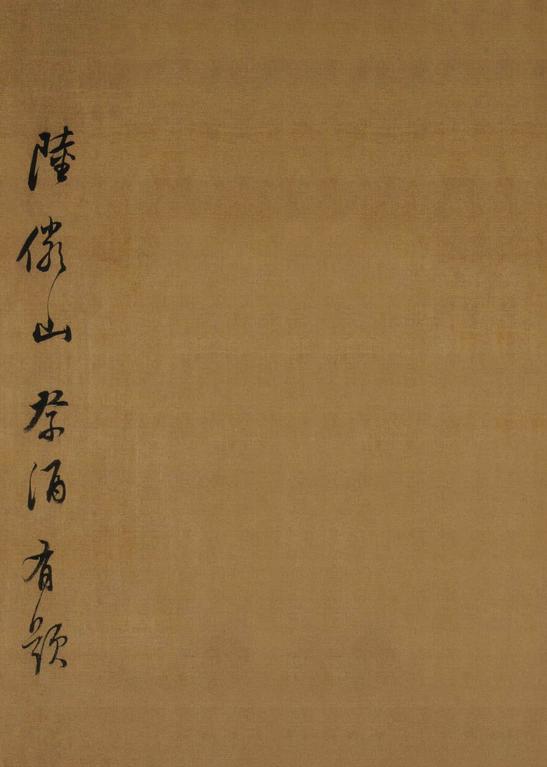 陸儼山祭酒有題